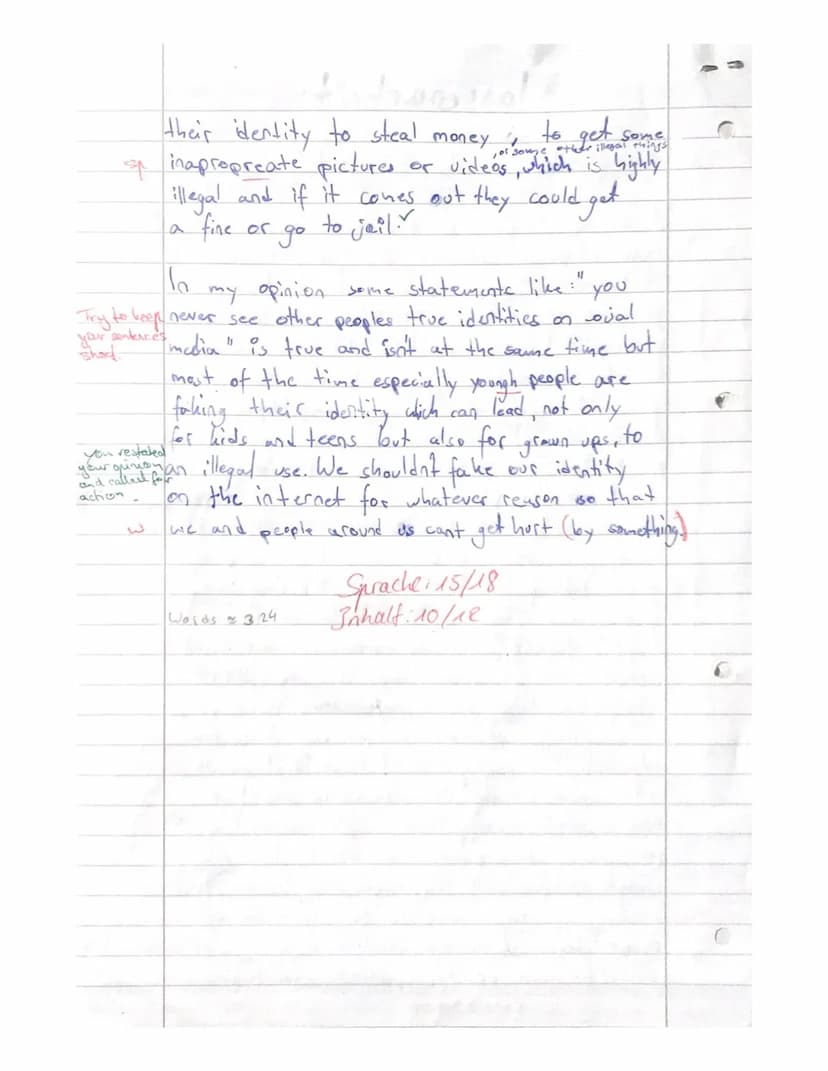 their identity to steal money, to get some
, or some other illegal things
sp inapropreate pictures or videos, which is highly
illegal and if it comes out they could get
a fine or go to jail. ✓
In my opinion some statements like: "you
Try to keep your sentences short.
never see other peoples true identities on social
media" is true and isn't at the same time but
most of the time especially youngh people are
faking their identity which can lead, not only
for kids and teens but also for grown ups, to
you restated your opinion and called for action.
an illegal use. We shouldn't fake our identity
on the internet for whatever reason so that
w we and people around us cant get hurt (by something.)
Sprache: 15/18
Words ≈ 324 Inhalt: 10/12